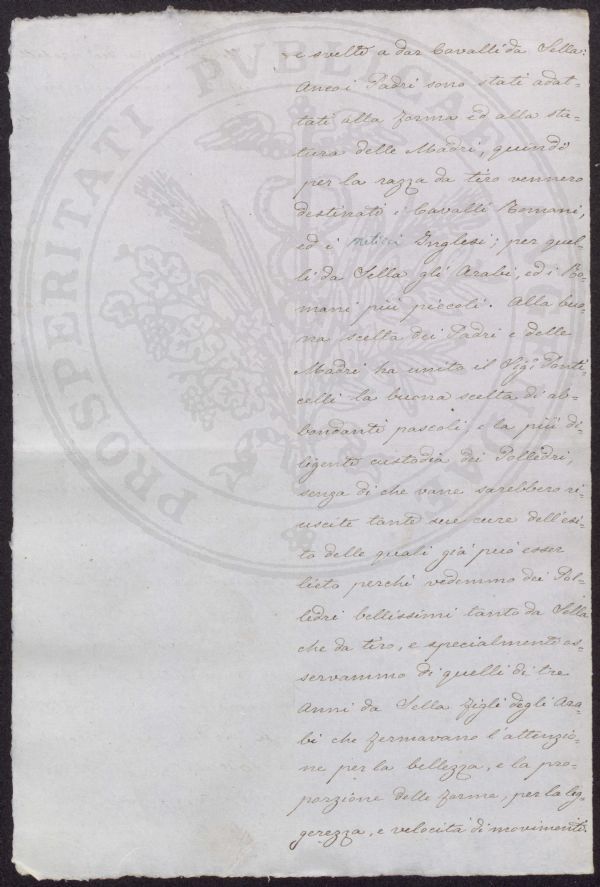 e svelte a dar Cavalli da Sella:
Anco i Padri sono stati adat-
tati alla forma ed alla sta-
tura delle Madri, quindi
per la razza da tiro vennero
destinati i Cavalli Romani,
ed i meticci Inglesi; per quel-
li da Sella gli Arabi, ed i Ro-
mani più piccoli. Alla buo-
na scelta dei Padri e delle
Madri ha unita il Sig.r Ponti-
celli la buona scelta di ab-
bondanti pascoli, e la più di-
ligente custodia dei Polledri,
senza di che vane sarebbero ri-
uscite tante sue cure dell'esi-
to delle quali già può esser
lieto perchè vedemmo dei Pol-
ledri bellissimi tanto da Sella
che da tiro, e specialmente os-
servammo di quelli di tre
anni da Sella figli degli Ara-
bi che fermavano l'attenzio-
ne per la bellezza, e la pro-
porzione delle forme, per la leg-
gerezza, e velocità di movimenti.
PROSPERITATI PVBLICAE AVGENDAE